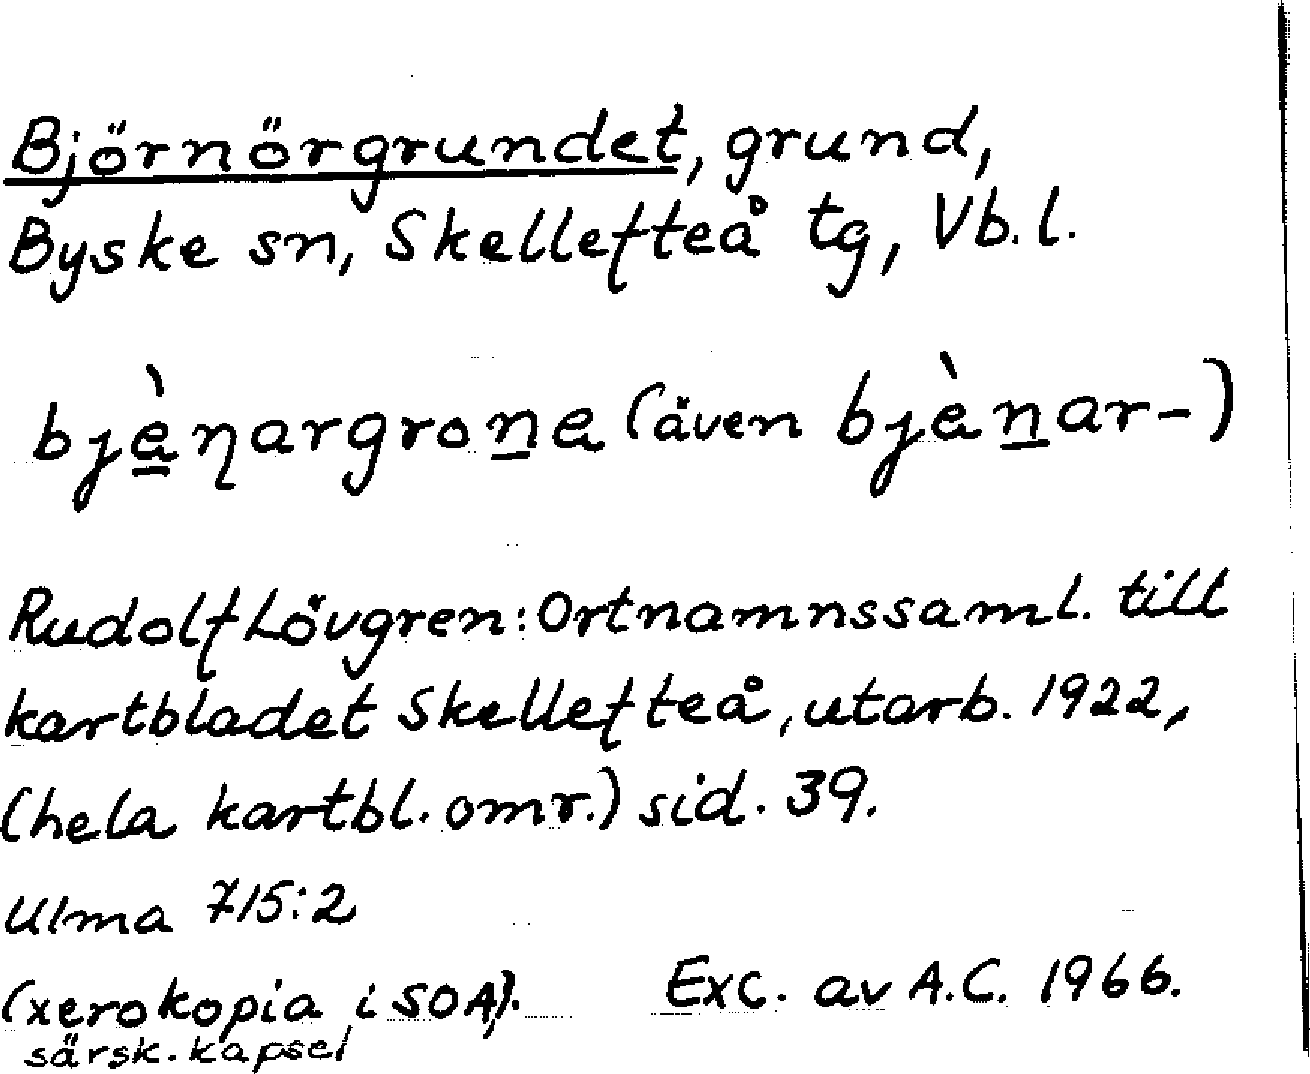 Björnörgrundet, grund,
Byske sn, Skellefteå tg, Vb.l.
bjè̱ŋargrone̲ (även bjèn̲ar-)
Rudolf Lövgren: Ortnamnssaml. till
kartbladet Skellefteå, utarb. 1922,
(hela kartbl. omr.) sid. 39.
Ulma 715:2
(xerokopia i SOA). Exc. av A.C. 1966.
särsk. kapsel